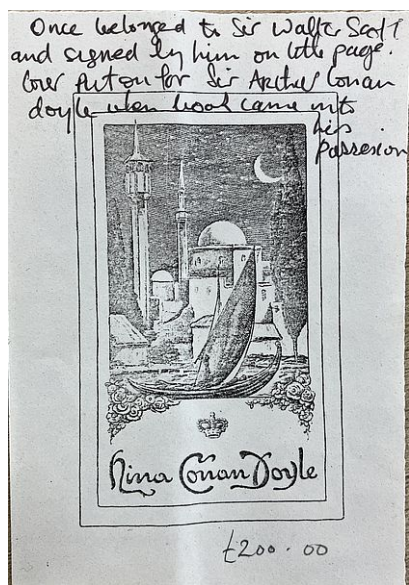 Once belonged to Sir Walter Scott
and signed by him on title page.
Cover put on for Sir Arthur Conan
doyle when book came into
his
possession
Nina Conan Doyle
£200.00